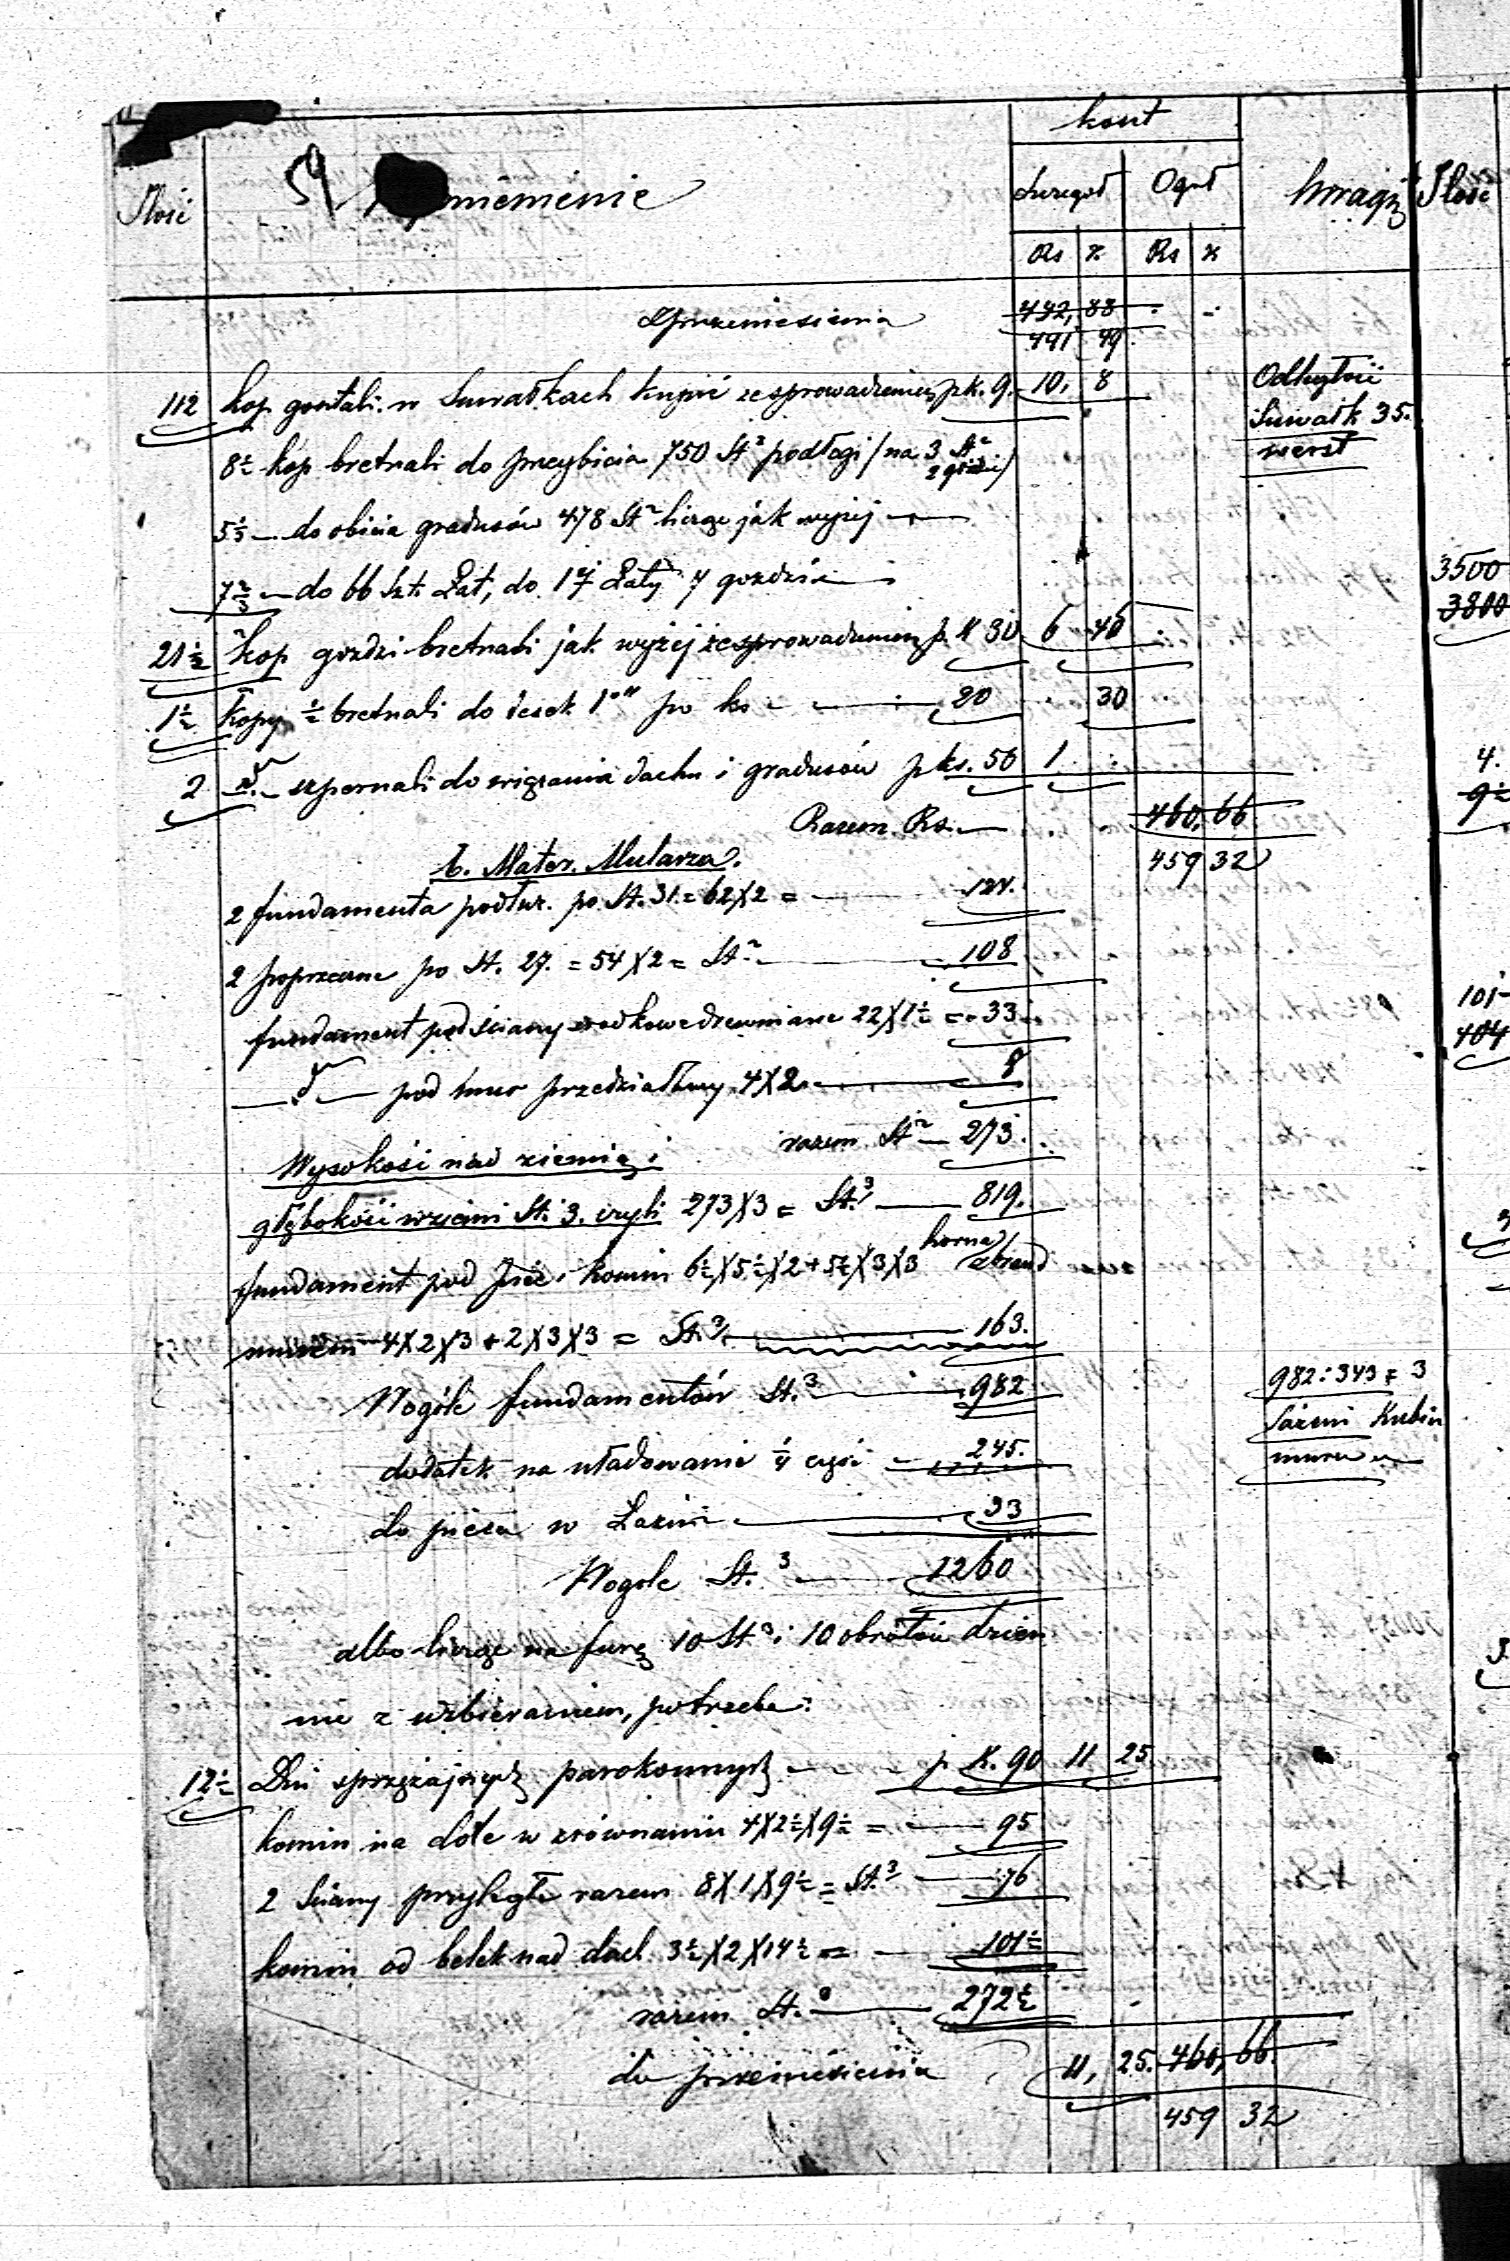 koszt
Ilość 59 mienienie Szczegół Ogół Uwagi Ilość
Rs k Rs k
Z przeniesienia 442, 88
441 49
112 kop gontali w Suwałkach kupić ze sprowadzeniem p k. 9. 10, 8 Odległość
Suwałk 35.
werst
8½ kop bretnali do przybicia 750 St² podłogi / na 3 St²
2 goździ /
5⅓ — do obicia gradusów 478 St² licząc jak wyżej
7⅔ — do 66 szt. Łat, do 1ej Łaty 7 gozdzi
3500
3800
21½ kop gozdzi bretnali jak wyżej ze sprowadzeniem p. K 30 6 46
1½ kopy ½ bretnali do desek 1"" po ks 20 30
2 szpernali do wiązania dachu i gradusów p ks. 50 1 4.
9½
Razem Rs. 460, 66
459 32
b. Mater. Mularza.
2 fundamenta podłuż. po St. 31 = 62X2 = 124.
2 poprzeczne po St. 27. = 54X2 = St² 108
101
404
fundament pod ściany środkowe drewniane 22X1½ = 33
pod mur przedziałowy 4X2 8
razem St² 273.
Wysokość nad ziemią i
głębokość w ziemi St. 3. czyli 273X3 = St.³ 819.
fundament pod piec i komin 6½X5½X2+5½X3X3
4X2X3 + 2X3X3 = St.³ 163.
Wogóle fundamentów St.³ 982
982 : 343 = 3
Sążeni Kubicz
muru
dodatek na uładowanie ¼ części 245.
do pieca w Łaźni 33
Wogole St.³ 1260
albo licząc na furę 10 St³ i 10 obrótów dzien
nie z uzbieraniem, potrzeba:
12½ Dni sprzężajnych parokonnych p K. 90 11 25.
komin na dole w zrównaniu 4X2½X9½ = 95
2 ściany przyległe razem 8X1X9½ = St.³ 76
komin od belek nad dach 3½X2X14½ = 101½
razem St.³ 272½
do przeniesienia 11, 25. 460, 66.
459 32